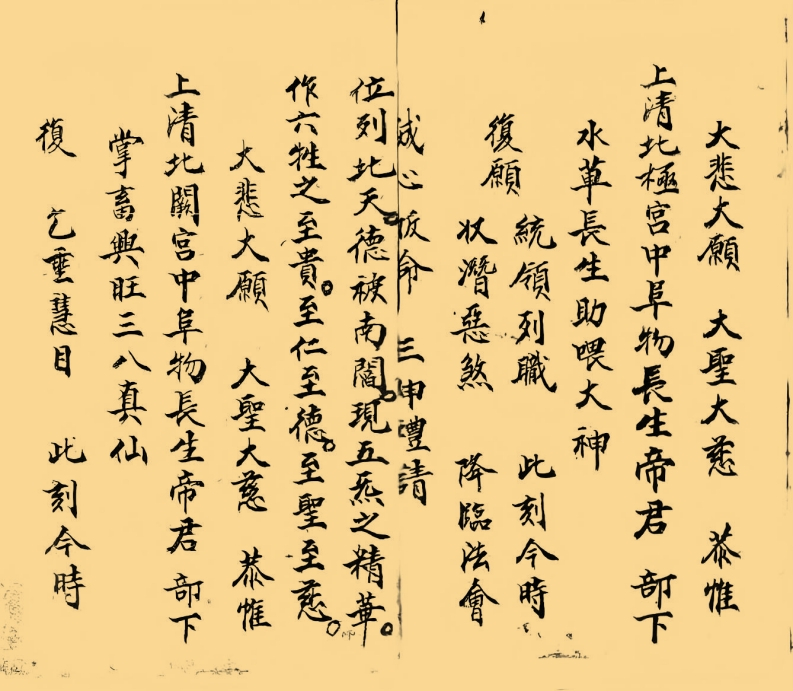 大悲大願 大聖大慈 恭惟
上清北極宮中阜物長生帝君 部下
水草長生助喂大神
復願 統領列職 此刻今時
收潛惡煞 降臨法會
誠心皈命 三申禮請
位列北天。德被南閻。現五炁之精華。
作六牲之至貴。至仁至德。至聖至慈。
大悲大願 大聖大慈 恭惟
上清北闕宮中阜物長生帝君 部下
掌畜興旺三八真仙
復 乞垂慧目 此刻今時